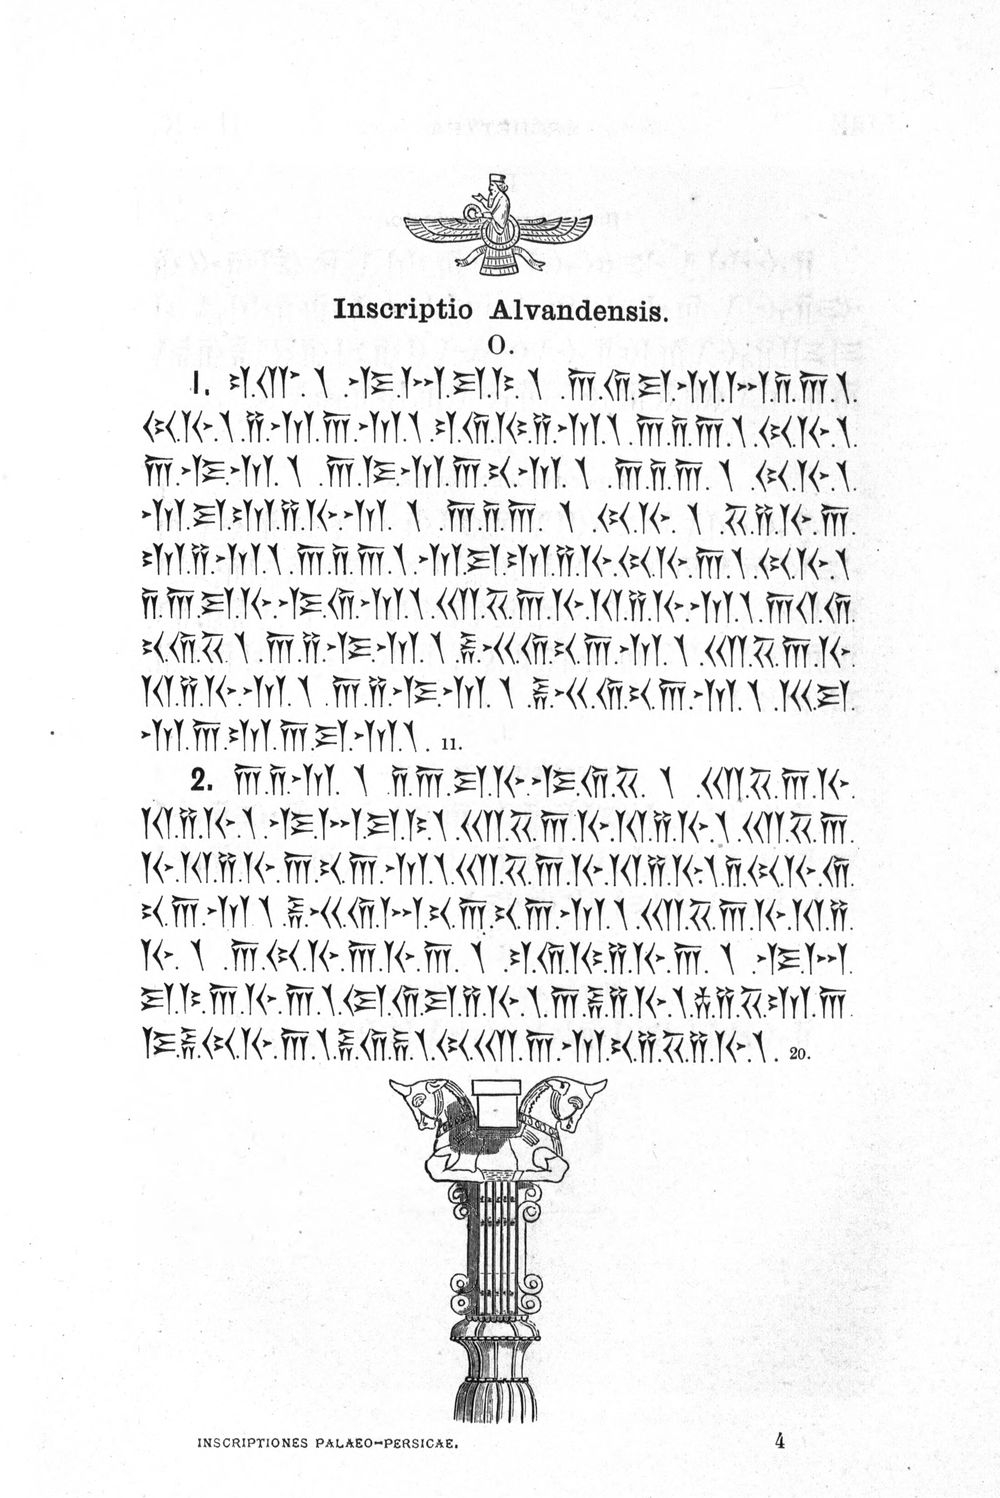 Inscriptio Alvandensis.
O.
1. 𐎲.𐎥.𐏐.𐎺.𐏀.𐎼.𐎣.𐏐.𐎠.𐎢.𐎼.𐎶.𐏀.𐎭.𐎠.𐏐.
𐏃.𐎹.𐏐.𐎡.𐎶.𐎠.𐎶.𐏐.𐎲.𐎢.𐎷.𐎡.𐎶.𐏐.𐎠.𐎭.𐎠.𐏐.𐏃.𐎹.𐏐.
𐎠.𐎺.𐎶.𐏐.𐎠.𐎿.𐎶.𐎠.𐎴.𐎶.𐏐.𐎠.𐎭.𐎠.𐏐.𐏃.𐎹.𐏐.
𐎶.𐎼.𐎫.𐎡.𐎹.𐎶.𐏐.𐎠.𐎭.𐎠.𐏐.𐏃.𐎹.𐏐.𐏁.𐎡.𐎹.𐎠.
𐎫.𐎡.𐎶.𐏐.𐎠.𐎭.𐎠.𐏐.𐎶.𐎼.𐎫.𐎡.𐎹.𐏃.𐎹.𐎠.𐏐.𐏃.𐎹.𐏐
𐎭.𐎠.𐎼.𐎹.𐎺.𐎢.𐎶.𐏐.𐎧.𐏁.𐎠.𐎹.𐎰.𐎡.𐎹.𐎶.𐏐.𐎠.𐎤.𐎢.
𐎴.𐎢.𐏁.𐏐.𐎠.𐎡.𐎺.𐎶.𐏐.𐎱.𐎽.𐎢.𐎴.𐎠.𐎶.𐏐.𐎧.𐏁.𐎠.𐎹.
𐎰.𐎡.𐎹.𐎶.𐏐.𐎠.𐎡.𐎺.𐎶.𐏐.𐎱.𐎽.𐎢.𐎴.𐎠.𐎶.𐏐.𐎳.𐎼.
𐎶.𐎠.𐎫.𐎠.𐎼.𐎶.𐏐. 11.
2. 𐎠.𐎭.𐎶.𐏐.𐎭.𐎠.𐎼.𐎹.𐎺.𐎢.𐏁.𐏐.𐎧.𐏁.𐎠.𐎹.
𐎰.𐎡.𐎹.𐏐.𐎺.𐏀.𐎼.𐎣.𐏐.𐎧.𐏁.𐎠.𐎹.𐎰.𐎡.𐎹.𐏐.𐎧.𐏁.𐎠.
𐎹.𐎰.𐎡.𐎹.𐎠.𐎴.𐎠.𐎶.𐏐.𐎧.𐏁.𐎠.𐎹.𐎰.𐎡.𐎹.𐏐.𐎭.𐏃.𐎹.𐎢.
𐎴.𐎠.𐎶.𐏐.𐎱.𐎽.𐎢.𐏀.𐎴.𐎠.𐎴.𐎠.𐎶.𐏐.𐎧.𐏁.𐎠.𐎹.𐎰.𐎡.
𐎹.𐏐.𐎠.𐏃.𐎹.𐎠.𐎹.𐎠.𐏐.𐎲.𐎢.𐎷.𐎡.𐎹.𐎠.𐏐.𐎺.𐏀.
𐎼.𐎣.𐎠.𐎹.𐎠.𐏐.𐎯.𐎢.𐎼.𐎡.𐎹.𐏐.𐎠.𐎱.𐎡.𐎹.𐏐.𐎻.𐎡.𐏁.𐎫.𐎠.
𐎿.𐎱.𐏃.𐎹.𐎠.𐏐.𐎱.𐎢.𐏂.𐏐.𐏃.𐎧.𐎠.𐎶.𐎴.𐎡.𐏁.𐎡.𐎹.𐏐. 20.
INSCRIPTIONES PALAEO-PERSICAE. 4